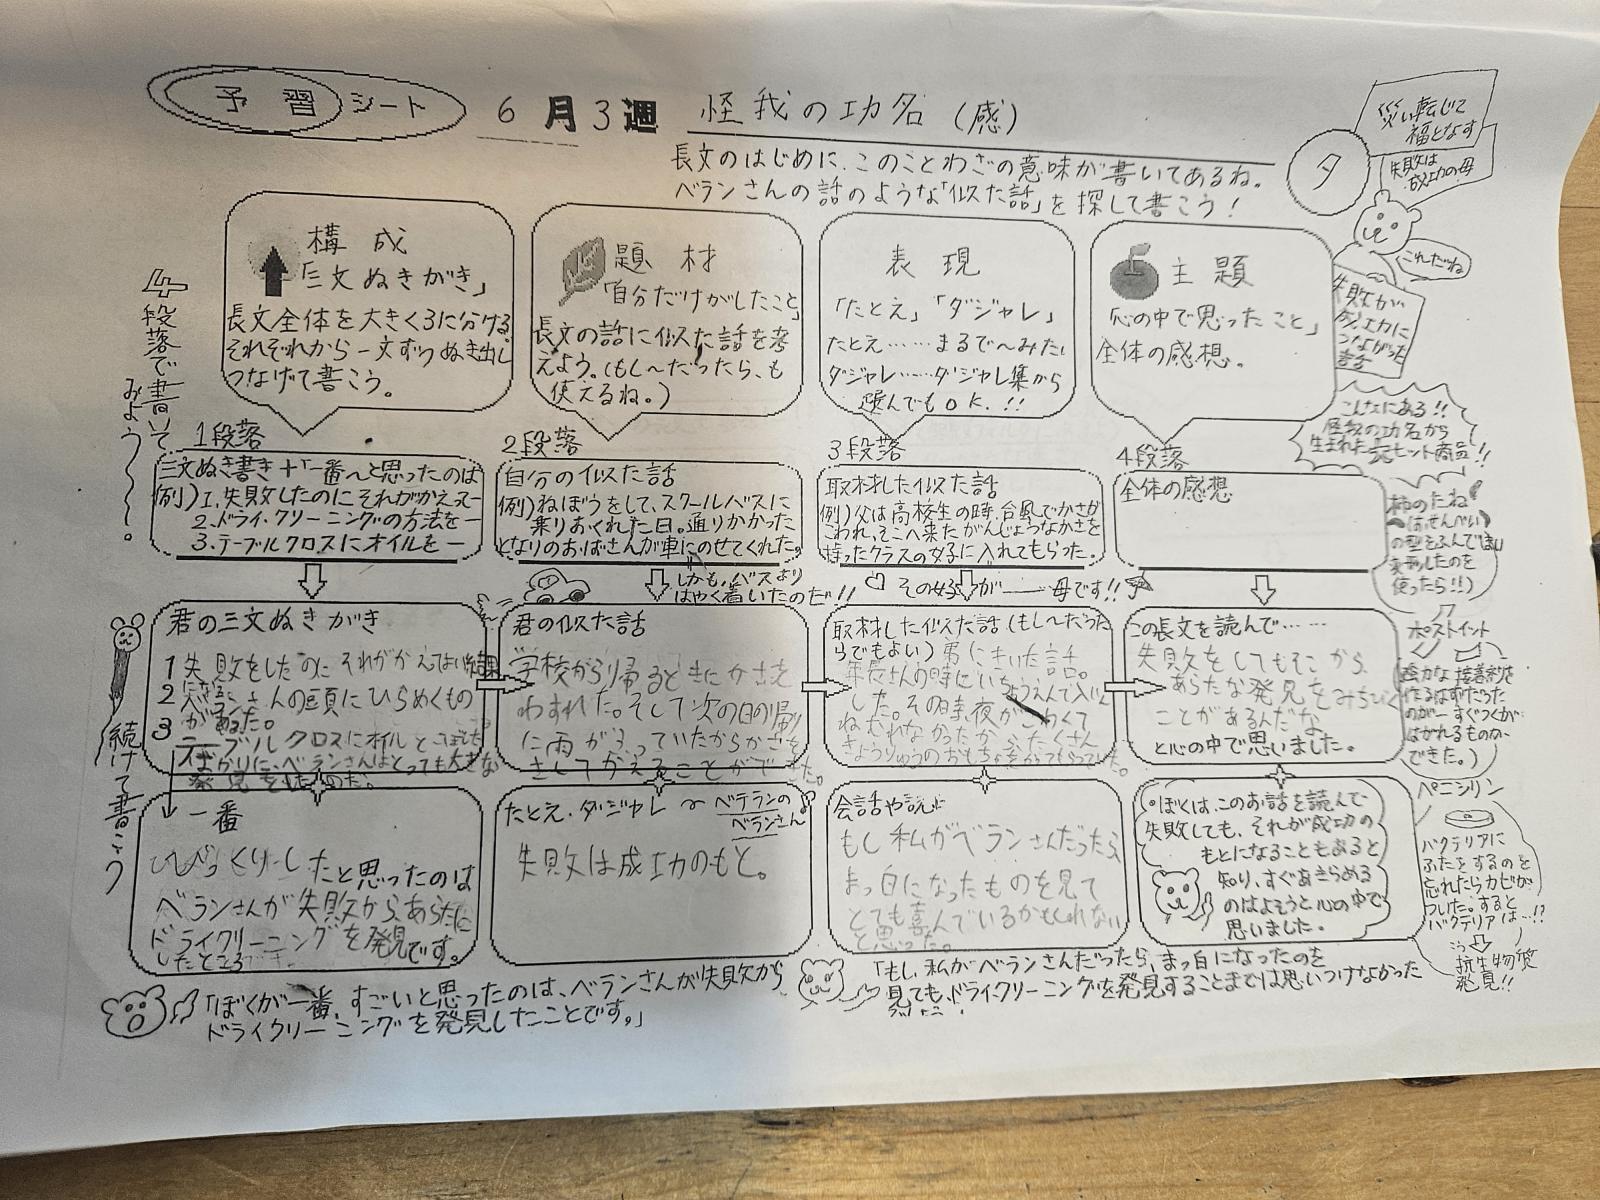 予習シート 6月3週 怪我の功名(感)
タ
災い転じて
福となす
失敗は
成功の母
長文のはじめに、このことわざの意味が書いてあるね。
ベランさんの話のような「似た話」を探して書こう!
これだね
失敗が
成功に
つながった
話
4段落で書いて
みよう〜〜。
構成
「三文ぬきがき」
長文全体を大きく3に分ける。
それぞれから一文ずつぬき出し
つなげて書こう。
題材
「自分だけがしたこと」
長文の話に似た話を考
えよう。(もし〜だったら、も
使えるね。)
表現
「たとえ」「ダジャレ」
たとえ……まるで〜みたい
ダジャレ……ダジャレ集から
選んでもOK.!!
主題
「心の中で思ったこと」
全体の感想。
こんなにある!!
怪我の功名から
生まれた
ヒット商品!!
1段落
三文ぬき書き+「一番〜と思ったのは
例)1.失敗したのにそれがかえって
2.ドライ・クリーニングの方法を一
3.テーブルクロスにオイルを一
2段落
自分の似た話
例)ねぼうをして、スクールバスに
乗りおくれた日。通りかかった
となりのおばさんが車にのせてくれた。
しかも、バスより
はやく着いたのだ!!
3段落
取材した似た話
例)父は高校生の時、台風でかさが
こわれ、そこへ来たがんじょうなかさを
持ったクラスの女子に入れてもらった。
その女子が——母です!!
4段落
全体の感想
柿のたね
の型をふんでしまい
変形したのを
使ったら!!)
続けて書こう
君の三文ぬきがき
1 失敗をしたのにそれがかえってよい結果
になる。
2 ベランさんの頭にひらめくもの
があった。
3 テーブルクロスにオイルをこぼした
ばかりに、ベランさんはとっても大きな
発見をしたのだ。
君の似た話
学校から帰るときにかさを
わすれた。そして次の日の帰り
に雨がふっていたからかさを
さしてかえることができた。
取材した似た話(もし〜だった
らでもよい)
年長さんの時にいちょうえんで入いん
した。その時、夜がこわくて
ねむれなかったから、たくさん
きょうりゅうのおもちゃを
この長文を読んで……
失敗をしてもそこから、
あらたな発見をみちびく
ことがあるんだな
と心の中で思いました。
ポストイット
強力な接着剤を
作るはずだった
のが一すぐつくが
はがれるものが、
できた。)
一番
びっくりしたと思ったのは
ベランさんが失敗からあらたに
ドライクリーニングを発見
したところです。
たとえ・ダジャレ 〜 ベテランの
ベランさん
失敗は成功のもと。
会話や説
もし私がベランさんだったら
まっ白になったものを見て
とても喜んでいるかもしれない
と思った。
・ぼくは、このお話を読んで
失敗しても、それが成功の
もとになることもあると
知り、すぐあきらめる
のはよそうと心の中で
思いました。
ペニシリン
バクテリアに
ふたをするのを
忘れたらカビが
ついた。すると
バクテリアは…!?
抗生物質
発見!!
「ぼくが一番、すごいと思ったのは、ベランさんが失敗から
ドライクリーニングを発見したことです。」
「もし、私がベランさんだったら、まっ白になったのを
見ても、ドライクリーニングを発見することまでは思いつけなかった